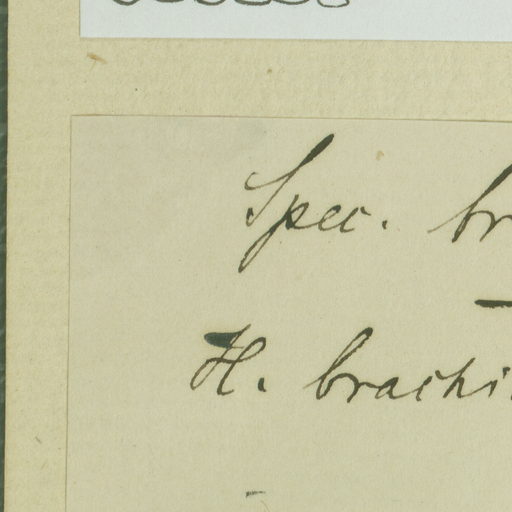 Spec. br
H. brachi